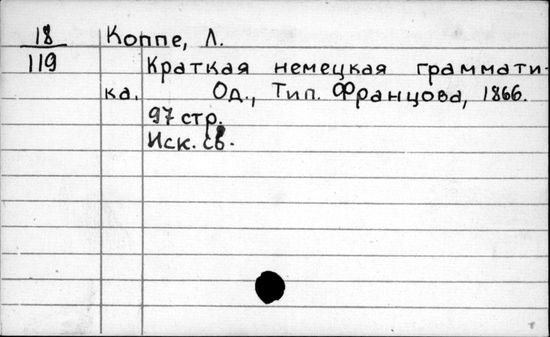 18 Коппе, Л.
119 Краткая немецкая граммати-
ка. Од., Тип. Францова, 1866.
97 стр.
Иск. св.